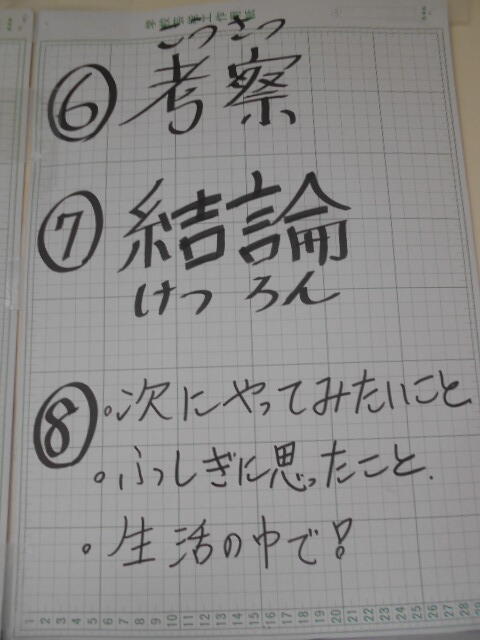 こうさつ
⑥ 考察
⑦ 結論
けつ ろん
⑧ 。次にやってみたいこと
。ふしぎに思ったこと.
。生活の中で!
1 2 3 4 5 6 7 8 9 10 11 12 13 14 15 16 17 18 19 20 21 22 23 24 25 26 27 28 29